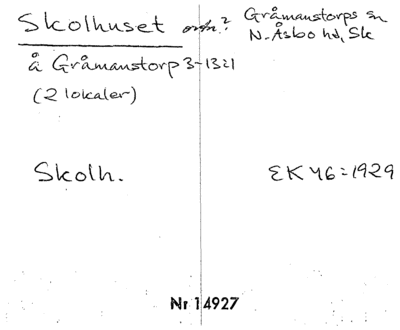 Skolhuset ortn? Gråmanstorps sn
N. Åsbo hd, Sk
å Gråmanstorp 3-13:1
(2 lokaler)
Skolh. EK Y6 = 1929
Nr 14927